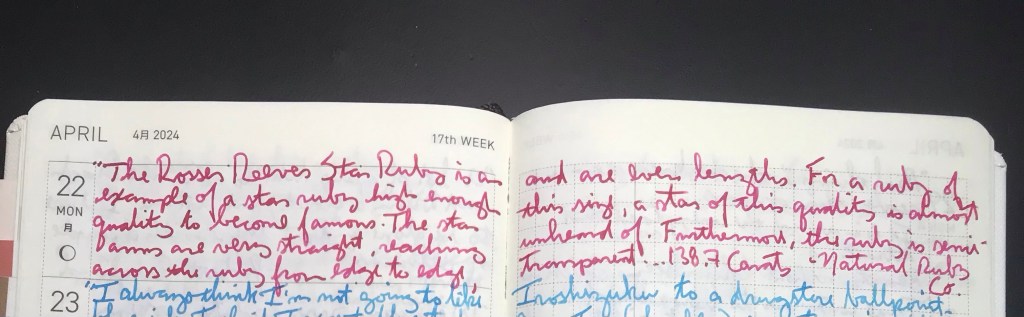 APRIL 4月 2024 17th WEEK
22
MON
月
"The Rosser Reeves Star Ruby is an
example of a star ruby high enough
quality to become famous. The star
arms are very straight, reaching
across the ruby from edge to edge,
and are even lengths. For a ruby of
this size, a star of this quality is almost
unheard of. Furthermore, the ruby is semi-
transparent"...138.7 Carats - Natural Ruby
Co.
23
"I always think I'm not going to like
Iroshizuku to a drugstore ballpoint.